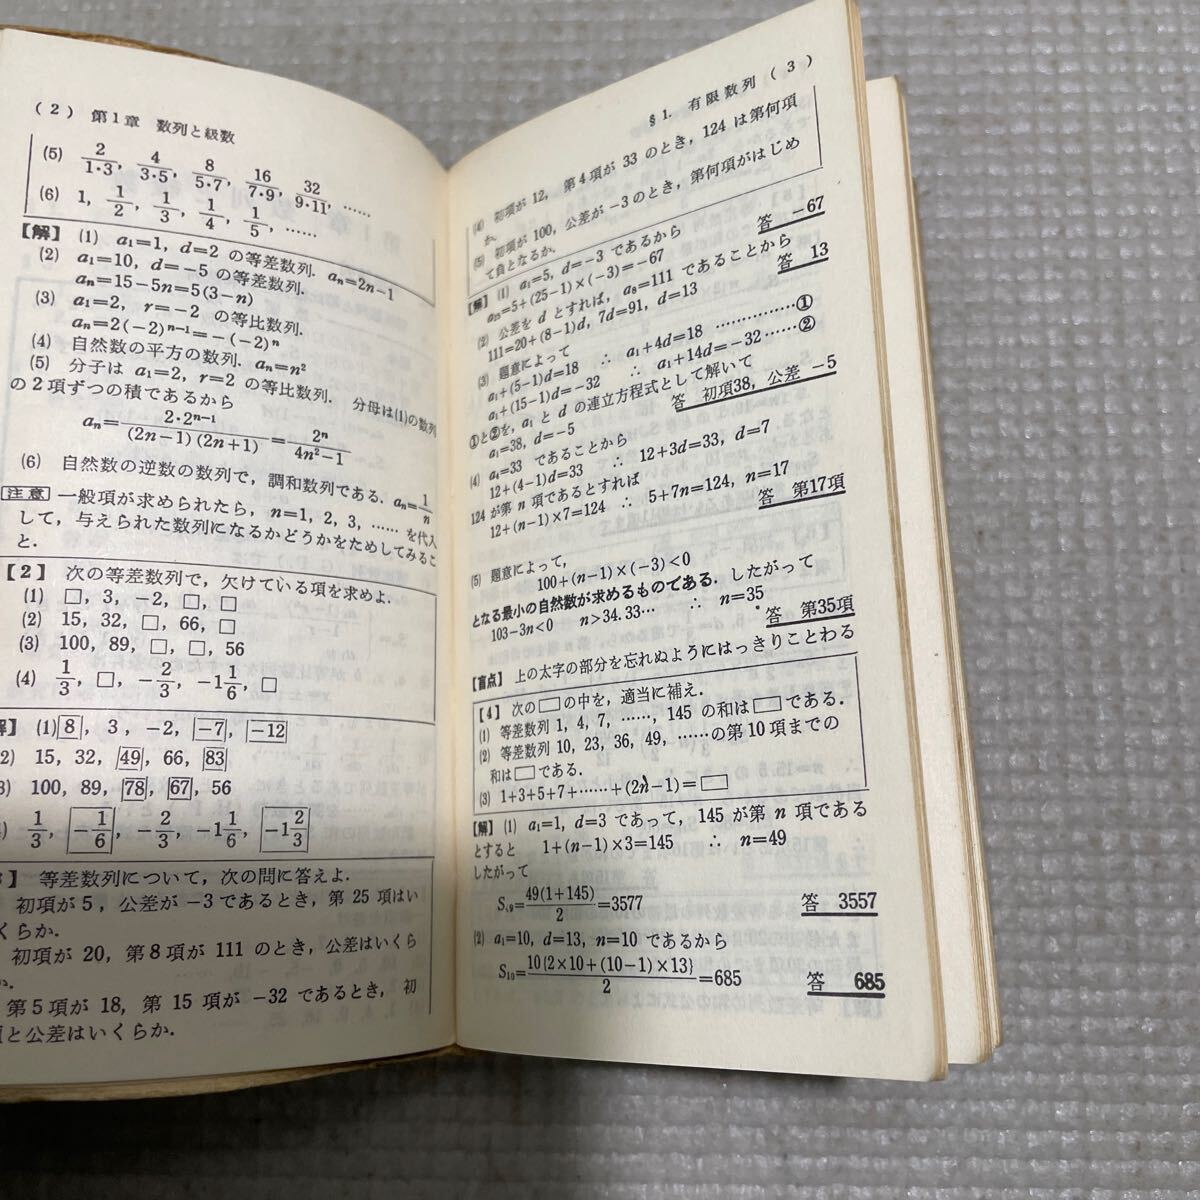 ( 2 ) 第1章 数列と級数
(5) 2/1·3, 4/3·5, 8/5·7, 16/7·9, 32/9·11, ……
(6) 1, 1/2, 1/3, 1/4, 1/5, ……
【解】 (1) a₁=1, d=2 の等差数列. aₙ=2n−1
(2) a₁=10, d=−5 の等差数列.
aₙ=15−5n=5(3−n)
(3) a₁=2, r=−2 の等比数列.
aₙ=2(−2)ⁿ⁻¹=−(−2)ⁿ
(4) 自然数の平方の数列. aₙ=n²
(5) 分子は a₁=2, r=2 の等比数列. 分母は(1)の数列
の2項ずつの積であるから
aₙ=2·2ⁿ⁻¹/(2n−1)(2n+1)=2ⁿ/4n²−1
(6) 自然数の逆数の数列で, 調和数列である. aₙ=1/n
注意 一般項が求められたら, n=1, 2, 3, …… を代入
して, 与えられた数列になるかどうかをためしてみるこ
と.
【2】 次の等差数列で, 欠けている項を求めよ.
(1) □, 3, −2, □, □
(2) 15, 32, □, 66, □
(3) 100, 89, □, □, 56
(4) 1/3, □, −2/3, −1 1/6, □
解】 (1) 8, 3, −2, −7, −12
2) 15, 32, 49, 66, 83
3) 100, 89, 78, 67, 56
) 1/3, −1/6, −2/3, −1 1/6, −1 2/3
】 等差数列について, 次の問に答えよ.
初項が5, 公差が −3であるとき, 第 25 項はい
くらか.
初項が 20, 第8項が 111 のとき, 公差はいくら
か.
第5項が 18, 第 15 項が −32 であるとき, 初
項と公差はいくらか.
§1. 有限数列 ( 3 )
(4) 初項が 12, 第4項が 33 のとき, 124 は第何項
か.
(5) 初項が 100, 公差が −3のとき, 第何項がはじめ
て負となるか.
【解】 (1) a₁=5, d=−3 であるから
a₂₅=5+(25−1)×(−3)=−67 答 −67
(2) 公差を d とすれば, a₈=111 であることから
111=20+(8−1)d, 7d=91, d=13 答 13
(3) 題意によって
a₁+(5−1)d=18 ∴ a₁+4d=18 ……………①
a₁+(15−1)d=−32 ∴ a₁+14d=−32 ……②
①と②を, a₁ と d の連立方程式として解いて
a₁=38, d=−5 答 初項38, 公差 −5
(4) a₄=33 であることから
12+(4−1)d=33 ∴ 12+3d=33, d=7
124 が第 n 項であるとすれば
12+(n−1)×7=124 ∴ 5+7n=124, n=17
答 第17項
(5) 題意によって,
100+(n−1)×(−3)<0
となる最小の自然数が求めるものである. したがって
103−3n<0 n>34.33… ∴ n=35
答 第35項
【盲点】 上の太字の部分を忘れぬようにはっきりことわる
【4】 次の□の中を, 適当に補え.
(1) 等差数列 1, 4, 7, ……, 145 の和は□である.
(2) 等差数列 10, 23, 36, 49, ……の第10項までの
和は□である.
(3) 1+3+5+7+……+(2n−1)=□
【解】 (1) a₁=1, d=3 であって, 145 が第 n 項である
とすると 1+(n−1)×3=145 ∴ n=49
したがって
S₄₉=49(1+145)/2=3577 答 3557
(2) a₁=10, d=13, n=10 であるから
S₁₀=10{2×10+(10−1)×13}/2=685 答 685